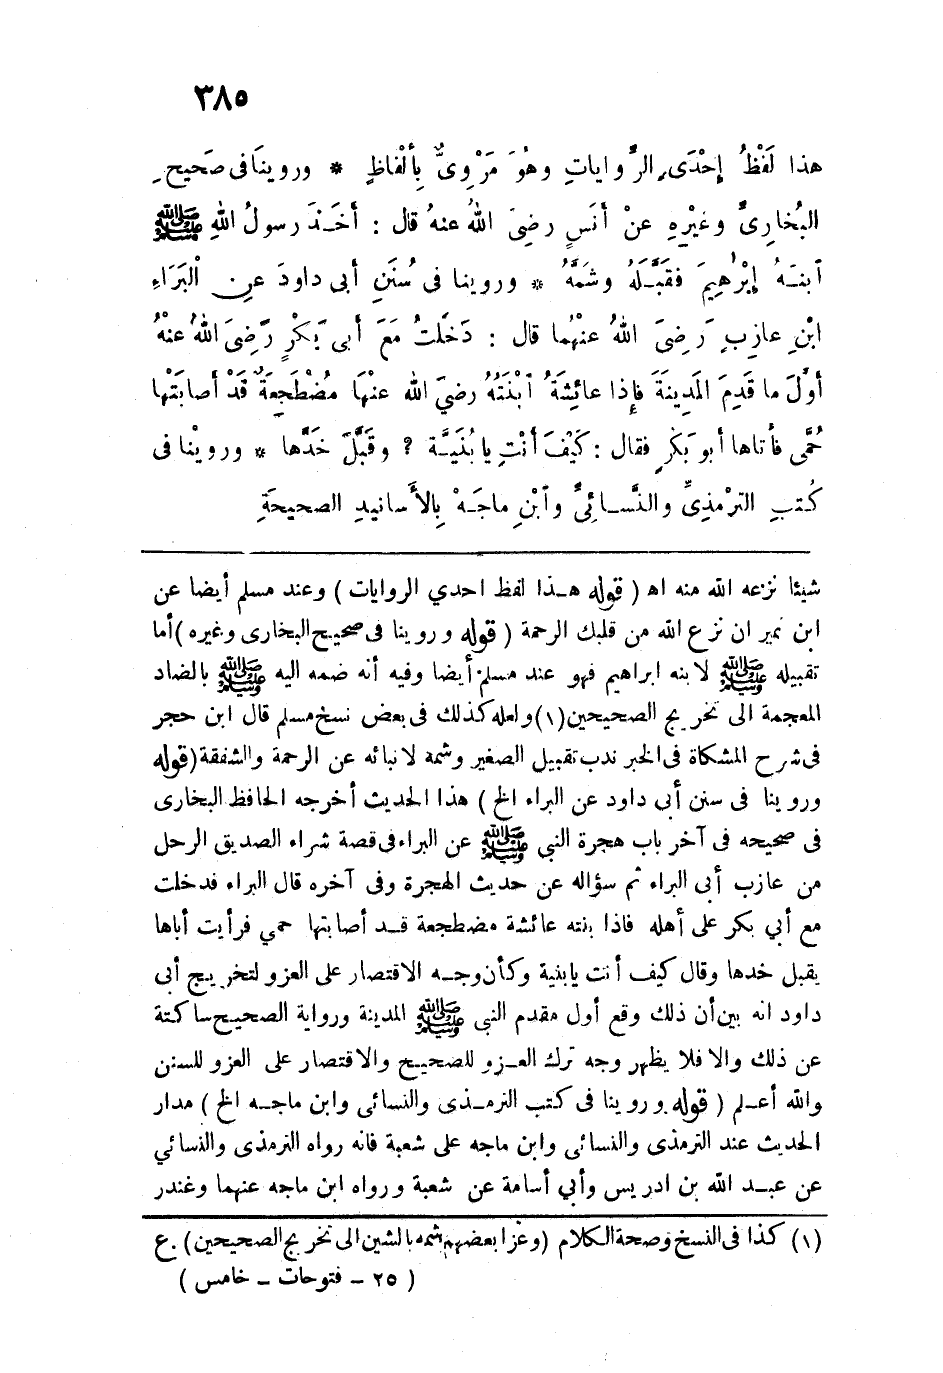 ٣٨٥
هذا لَفْظُ إِحْدَى الرِّوَاياتِ وهُوَ مَرْوِىٌّ بِأَلْفَاظٍ * وروينَا فى صَحيحِ
البُخَارِىِّ وغيْرِهِ عنْ أنَسٍ رضِىَ اللهُ عنهُ قال : أخَذَ رسولُ اللهِ ﷺ
ٱبنَهُ إبْرٰهِيمَ فَقبَّلَهُ وشَمَّهُ * وروينا فى سُنَنِ أبى داودَ عنِ الْبَرَاءِ
ابْنِ عازِبٍ رَضِىَ اللهُ عنْهُما قال : دَخَلْتُ مَعَ أبى بَكْرٍ رَضِىَ اللهُ عنْهُ
أوَّلَ ما قَدِمَ المَدِينَةَ فإِذا عائِشَةُ ٱبْنَتُهُ رضِىَ الله عنْهَا مُضْطَجِعَةٌ قَدْ أصابَتْها
حُمَّى فأتاها أبو بَكْرٍ فقال : كَيْفَ أنْتِ يا بُنَيَّة ؟ وقَبَّلَ خَدَّها * وروينا فى
كُتبِ الترْمذِىِّ والنَّسائِىِّ وٱبْنِ ماجَهْ بِالأَسانيدِ الصحيحَةِ
شيئا نزعه الله منه اه ( قوله هذا لفظ احدي الروايات ) وعند مسلم أيضا عن
ابن نمير ان نزع الله من قلبك الرحمة ( قوله وروينا فى صحيح البخارى وغيره ) أما
تقبيله ﷺ لابنه ابراهيم فهو عند مسلم أيضا وفيه أنه ضمه اليه ﷺ بالضاد
المعجمة الى تخريج الصحيحين (١) ولعله كذلك فى بعض نسخ مسلم قال ابن حجر
فى شرح المشكاة فى الخبر ندب تقبيل الصغير وشمه لانبائه عن الرحمة والشفقة ( قوله
وروينا فى سنن أبى داود عن البراء الخ ) هذا الحديث أخرجه الحافظ البخارى
فى صحيحه فى آخر باب هجرة النبى ﷺ عن البراء فى قصة شراء الصديق الرحل
من عازب أبى البراء ثم سؤاله عن حديث الهجرة وفى آخره قال البراء فدخلت
مع أبي بكر على أهله فاذا بنته عائشة مضطجعة قد أصابتها حمي فرأيت أباها
يقبل خدها وقال كيف أنت يابنية وكأن وجه الاقتصار على العزو لتخريج أبى
داود انه بين أن ذلك وقع أول مقدم النبى ﷺ المدينة ورواية الصحيح ساكتة
عن ذلك والا فلا يظهر وجه ترك العزو للصحيح والاقتصار على العزو للسنن
والله أعلم ( قوله وروينا فى كتب الترمذى والنسائى وابن ماجه الخ ) مدار
الحديث عند الترمذى والنسائى وابن ماجه على شعبة فانه رواه الترمذى والنسائي
عن عبد الله بن ادريس وأبي أسامة عن شعبة ورواه ابن ماجه عنهما وغندر
(١) كذا فى النسخ وصحة الكلام (وعزا بعضهم شمه بالشين الى تخريج الصحيحين) . ع
( ٢٥ - فتوحات - خامس )